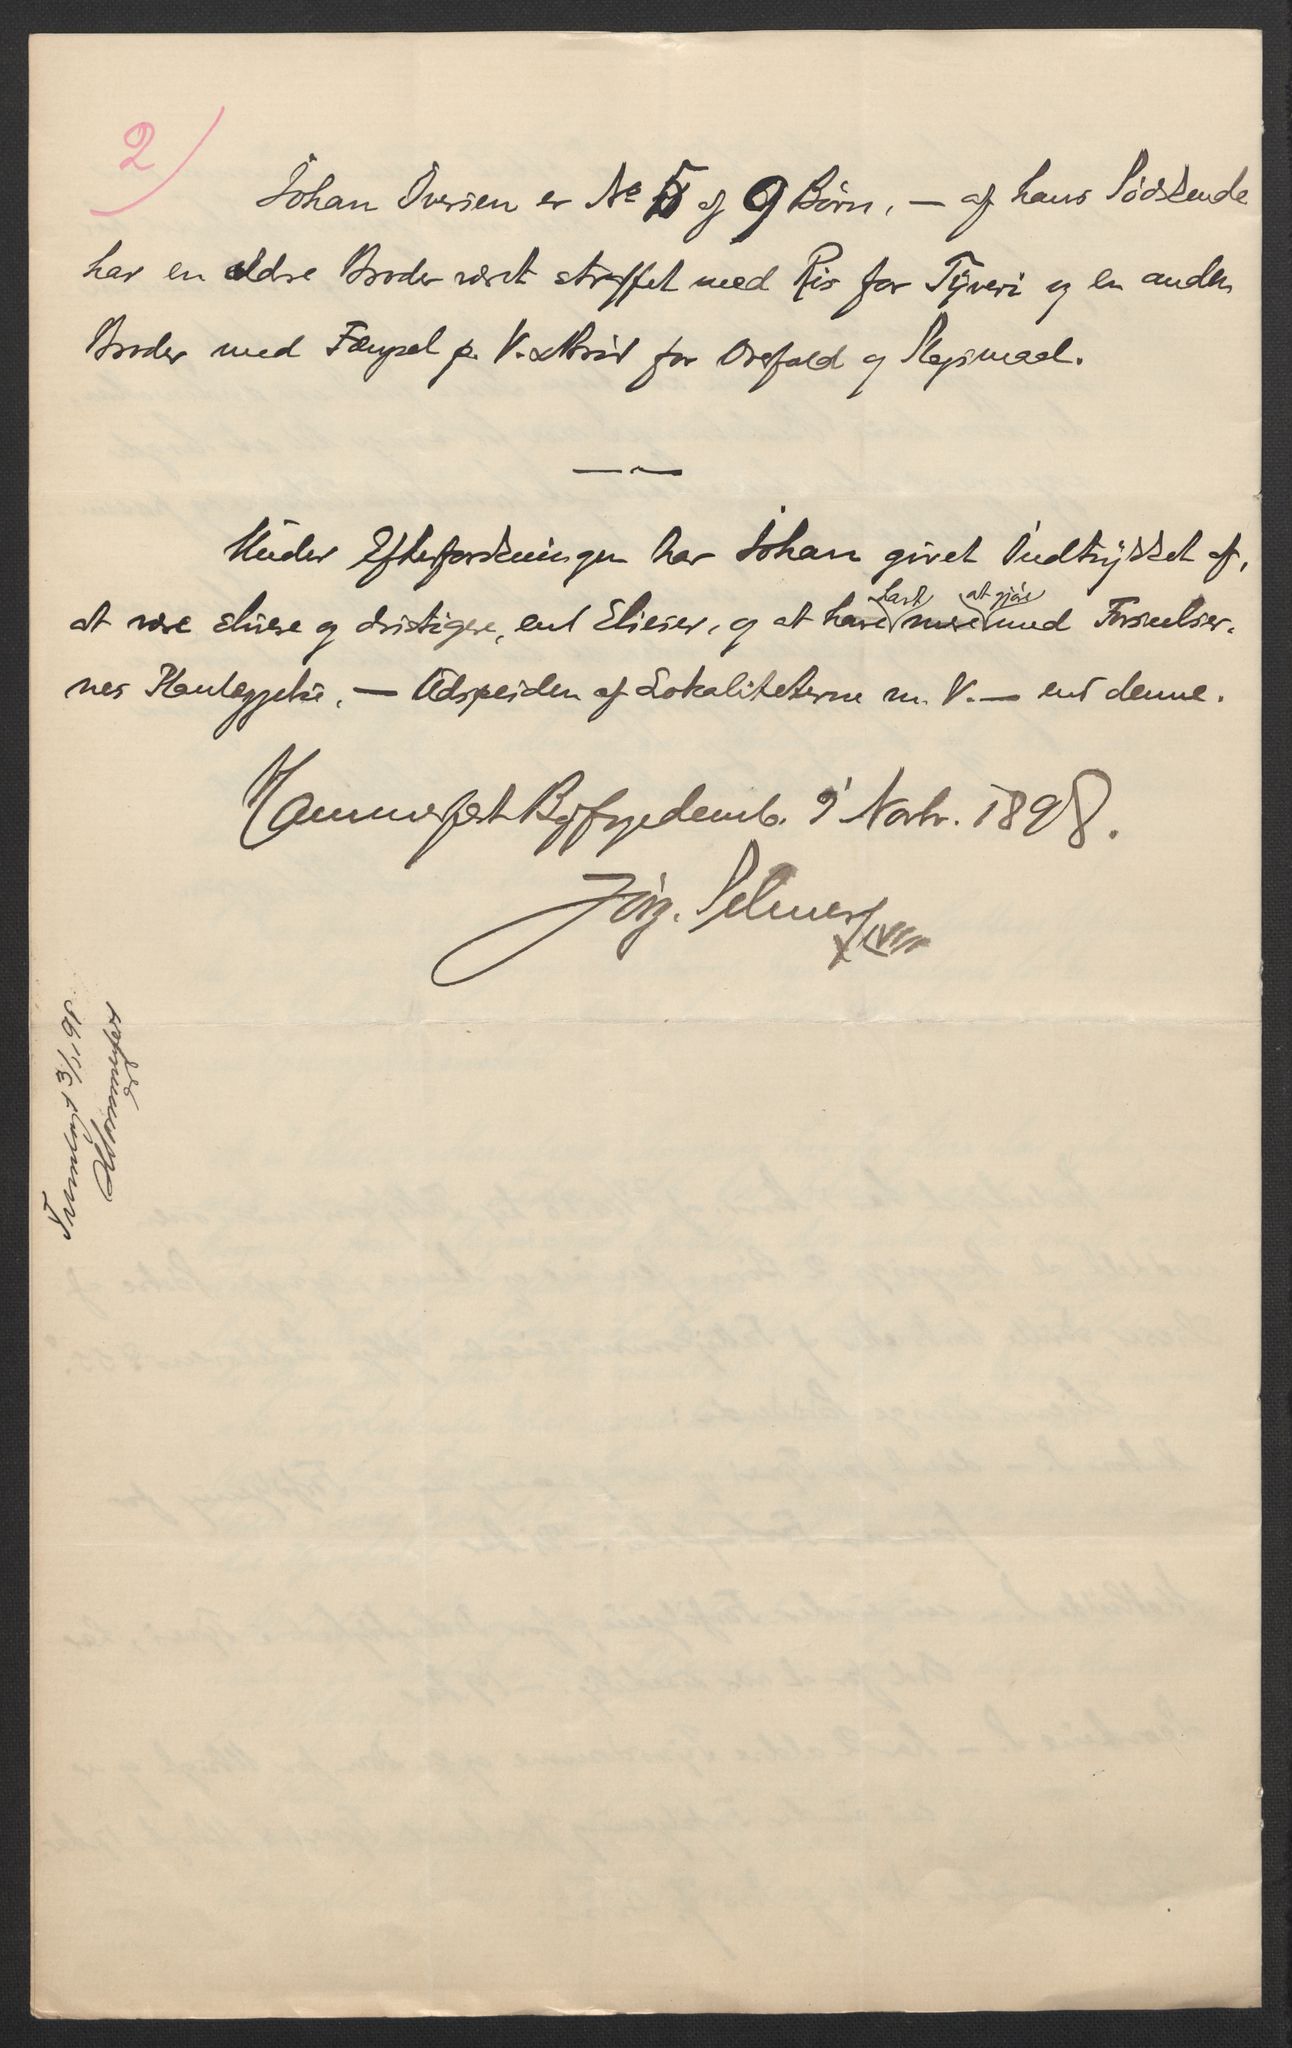 2)
Johan Iversen er No 5 af 9 Børn, — af hans Södskende
har en ældre Broder været straffet med Ris for Tyveri og en anden
Broder med Fængsel p. V. & Brød for Overfald og Slagsmaal.
Under Efterforskningen har Johan givet Indtrykket af,
at være sluere og dristigere, end Elieser, og at have havt mere at gjöre med Forbrydelser-
nes Planlæggelse, — Udspeiden af Lokaliteterne m. V. — end denne.
Hammerfest Byfogedemb. 9' Novbr. 1898.
Jörg. Selmer
Tromsø 13/11 98